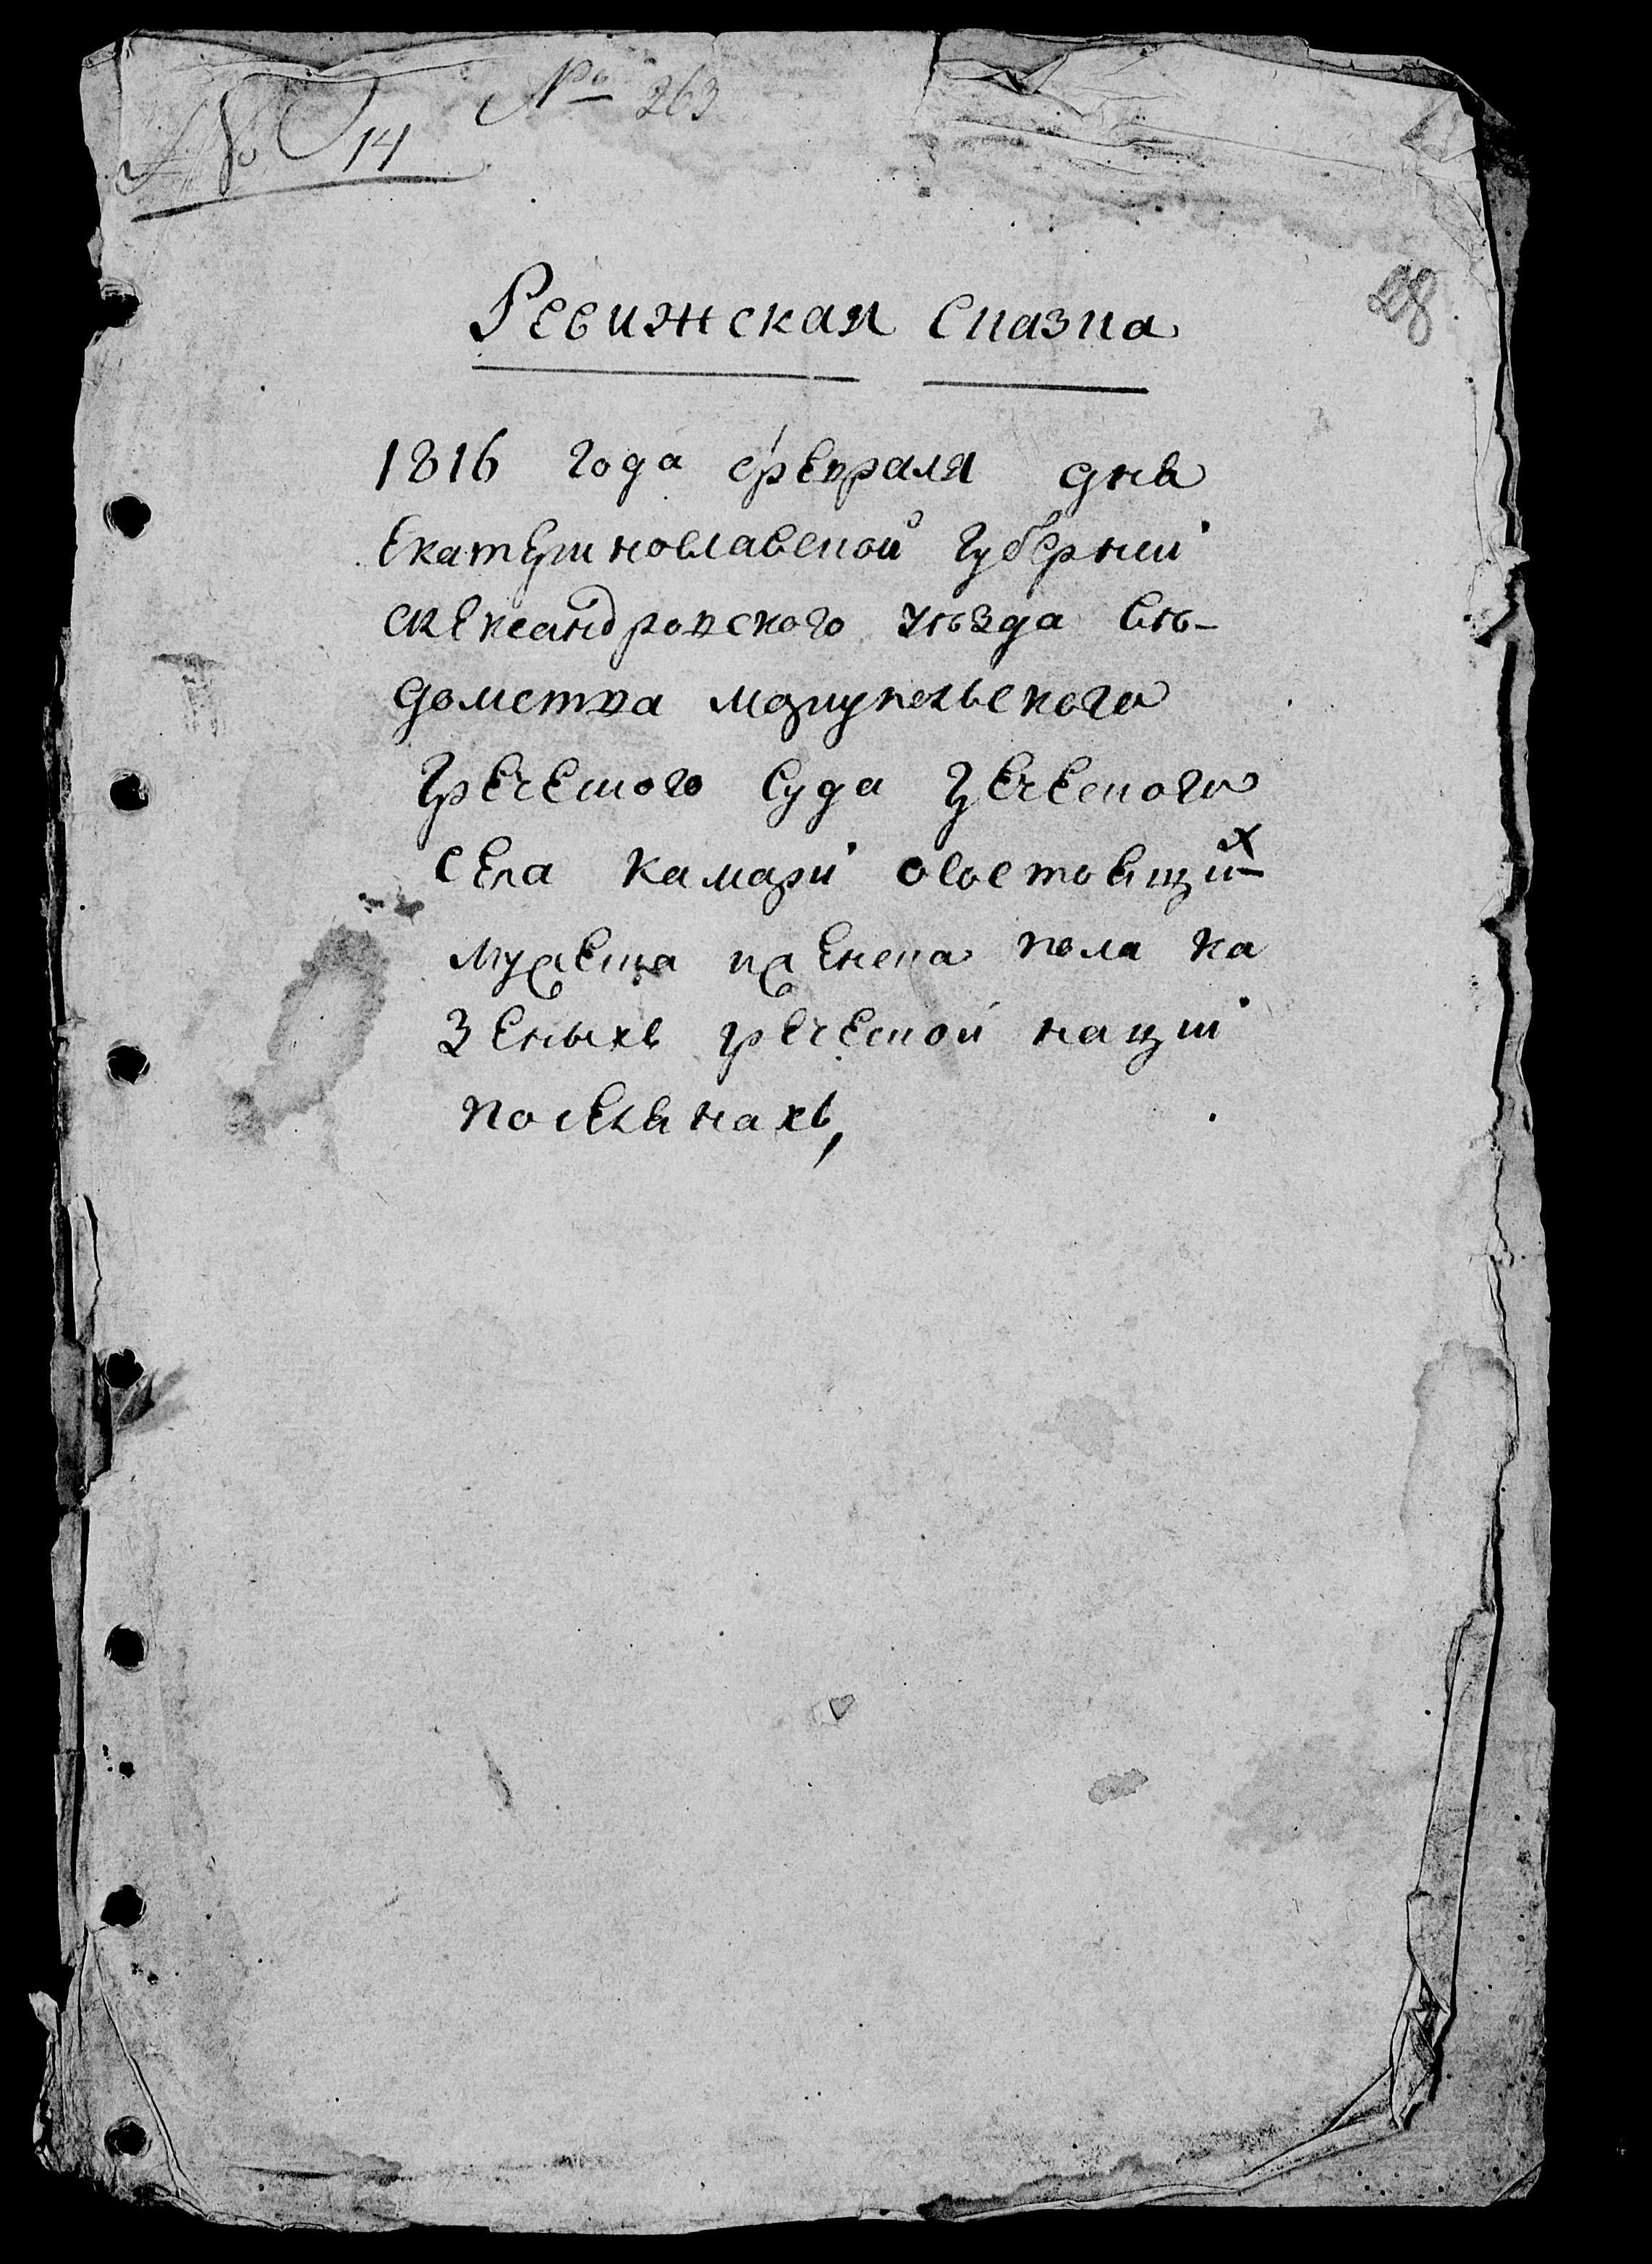 № 263
№ 14
28
Ревижская Сказка
1816 года февраля дня
Екатеринославской Губернии
Александровского уѣзда вѣ-
домства мариупольского
греческого суда греческого
села Камари осостоящих
мужеска и женска пола ка
зеныхъ греческой нации
поселянахъ,